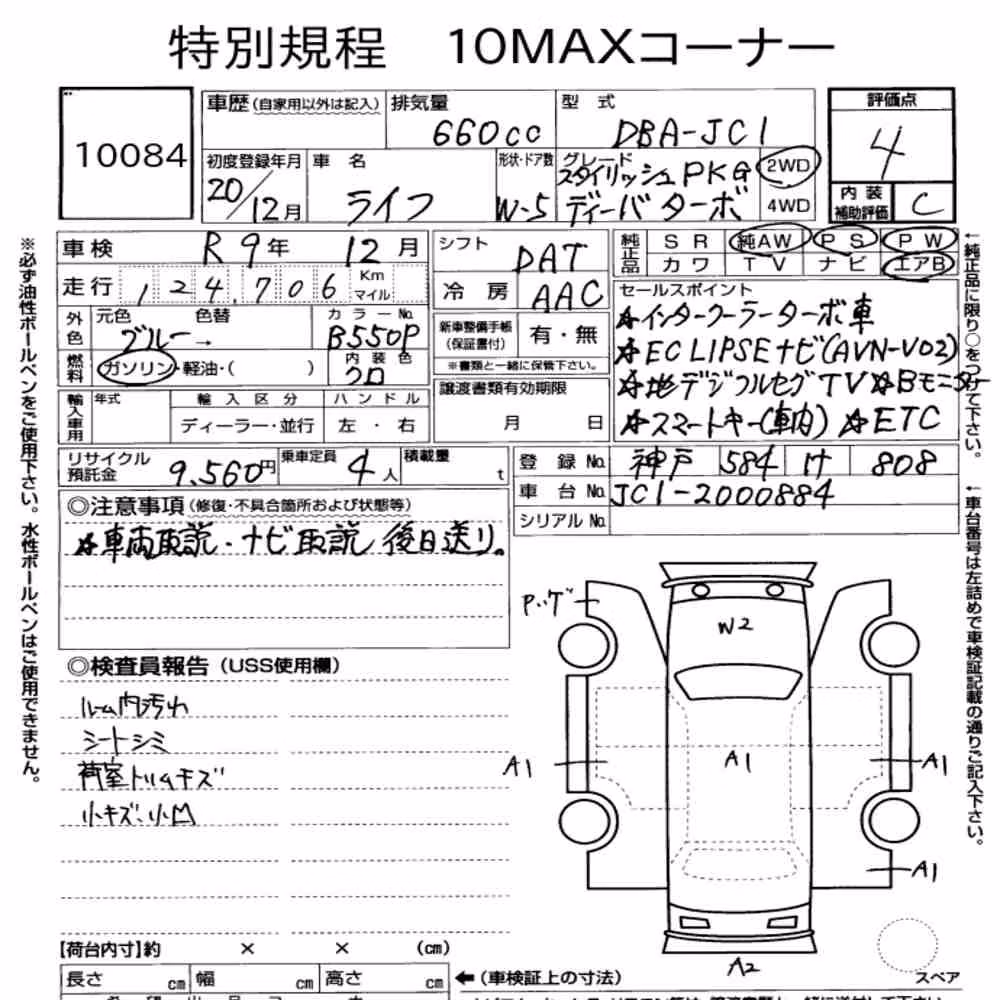 特別規程　10MAXコーナー
10084
車歴(自家用以外は記入) 排気量 型式 評価点
660cc DBA-JC1 4
初度登録年月 車名 形状・ドア数 グレード 2WD
20/12月 ライフ W-5 スタイリッシュPKG
ディーバ ターボ 4WD
内装補助評価 C
車検 R9年 12月
シフト DAT
純正品 SR 純AW PS PW
カワ TV ナビ エアB
走行 124,706 Km マイル
冷房 AAC
外色 元色 色替 カラーNo.
ブルー → B550P
燃料 ガソリン・軽油・( ) 内装色 クロ
新車整備手帳(保証書付) 有・無
※書類と一緒に保管下さい。
セールスポイント
☆インタークーラーターボ車
☆ECLIPSEナビ(AVN-V02)
☆地デジフルセグTV☆Bモニター
☆スマートキー(車内) ☆ETC
輸入車用 年式 輸入区分 ハンドル
ディーラー・並行 左・右
譲渡書類有効期限
月 日
リサイクル預託金 9,560円 乗車定員 4人 積載量 t
登録No. 神戸 584 け 808
車台No. JC1-2000884
シリアルNo.
◎注意事項(修復・不具合箇所および状態等)
☆車両取説・ナビ取説 後日送り。
◎検査員報告(USS使用欄)
ルーム内汚れ
シートシミ
荷室トリムキズ
小キズ、小凹
Pッゲ
W2
A1
A1
A1
A1
A2
スペア
【荷台内寸】約 × × (cm)
長さ cm 幅 cm 高さ cm ←(車検証上の寸法)
※必ず油性ボールペンをご使用下さい。水性ボールペンはご使用できません。
←純正品に限り○をつけて下さい。
←車台番号は左詰めで車検証記載の通りご記入下さい。